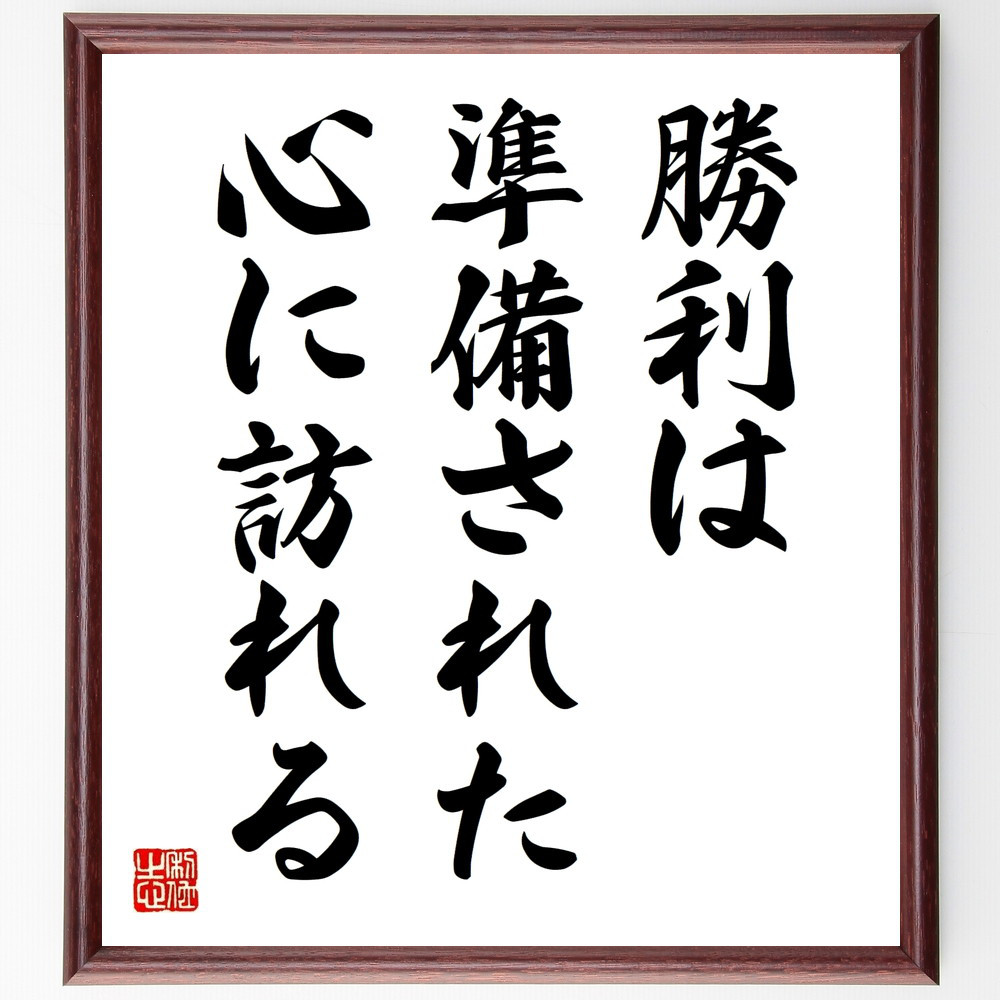 勝利は
準備された
心に訪れる